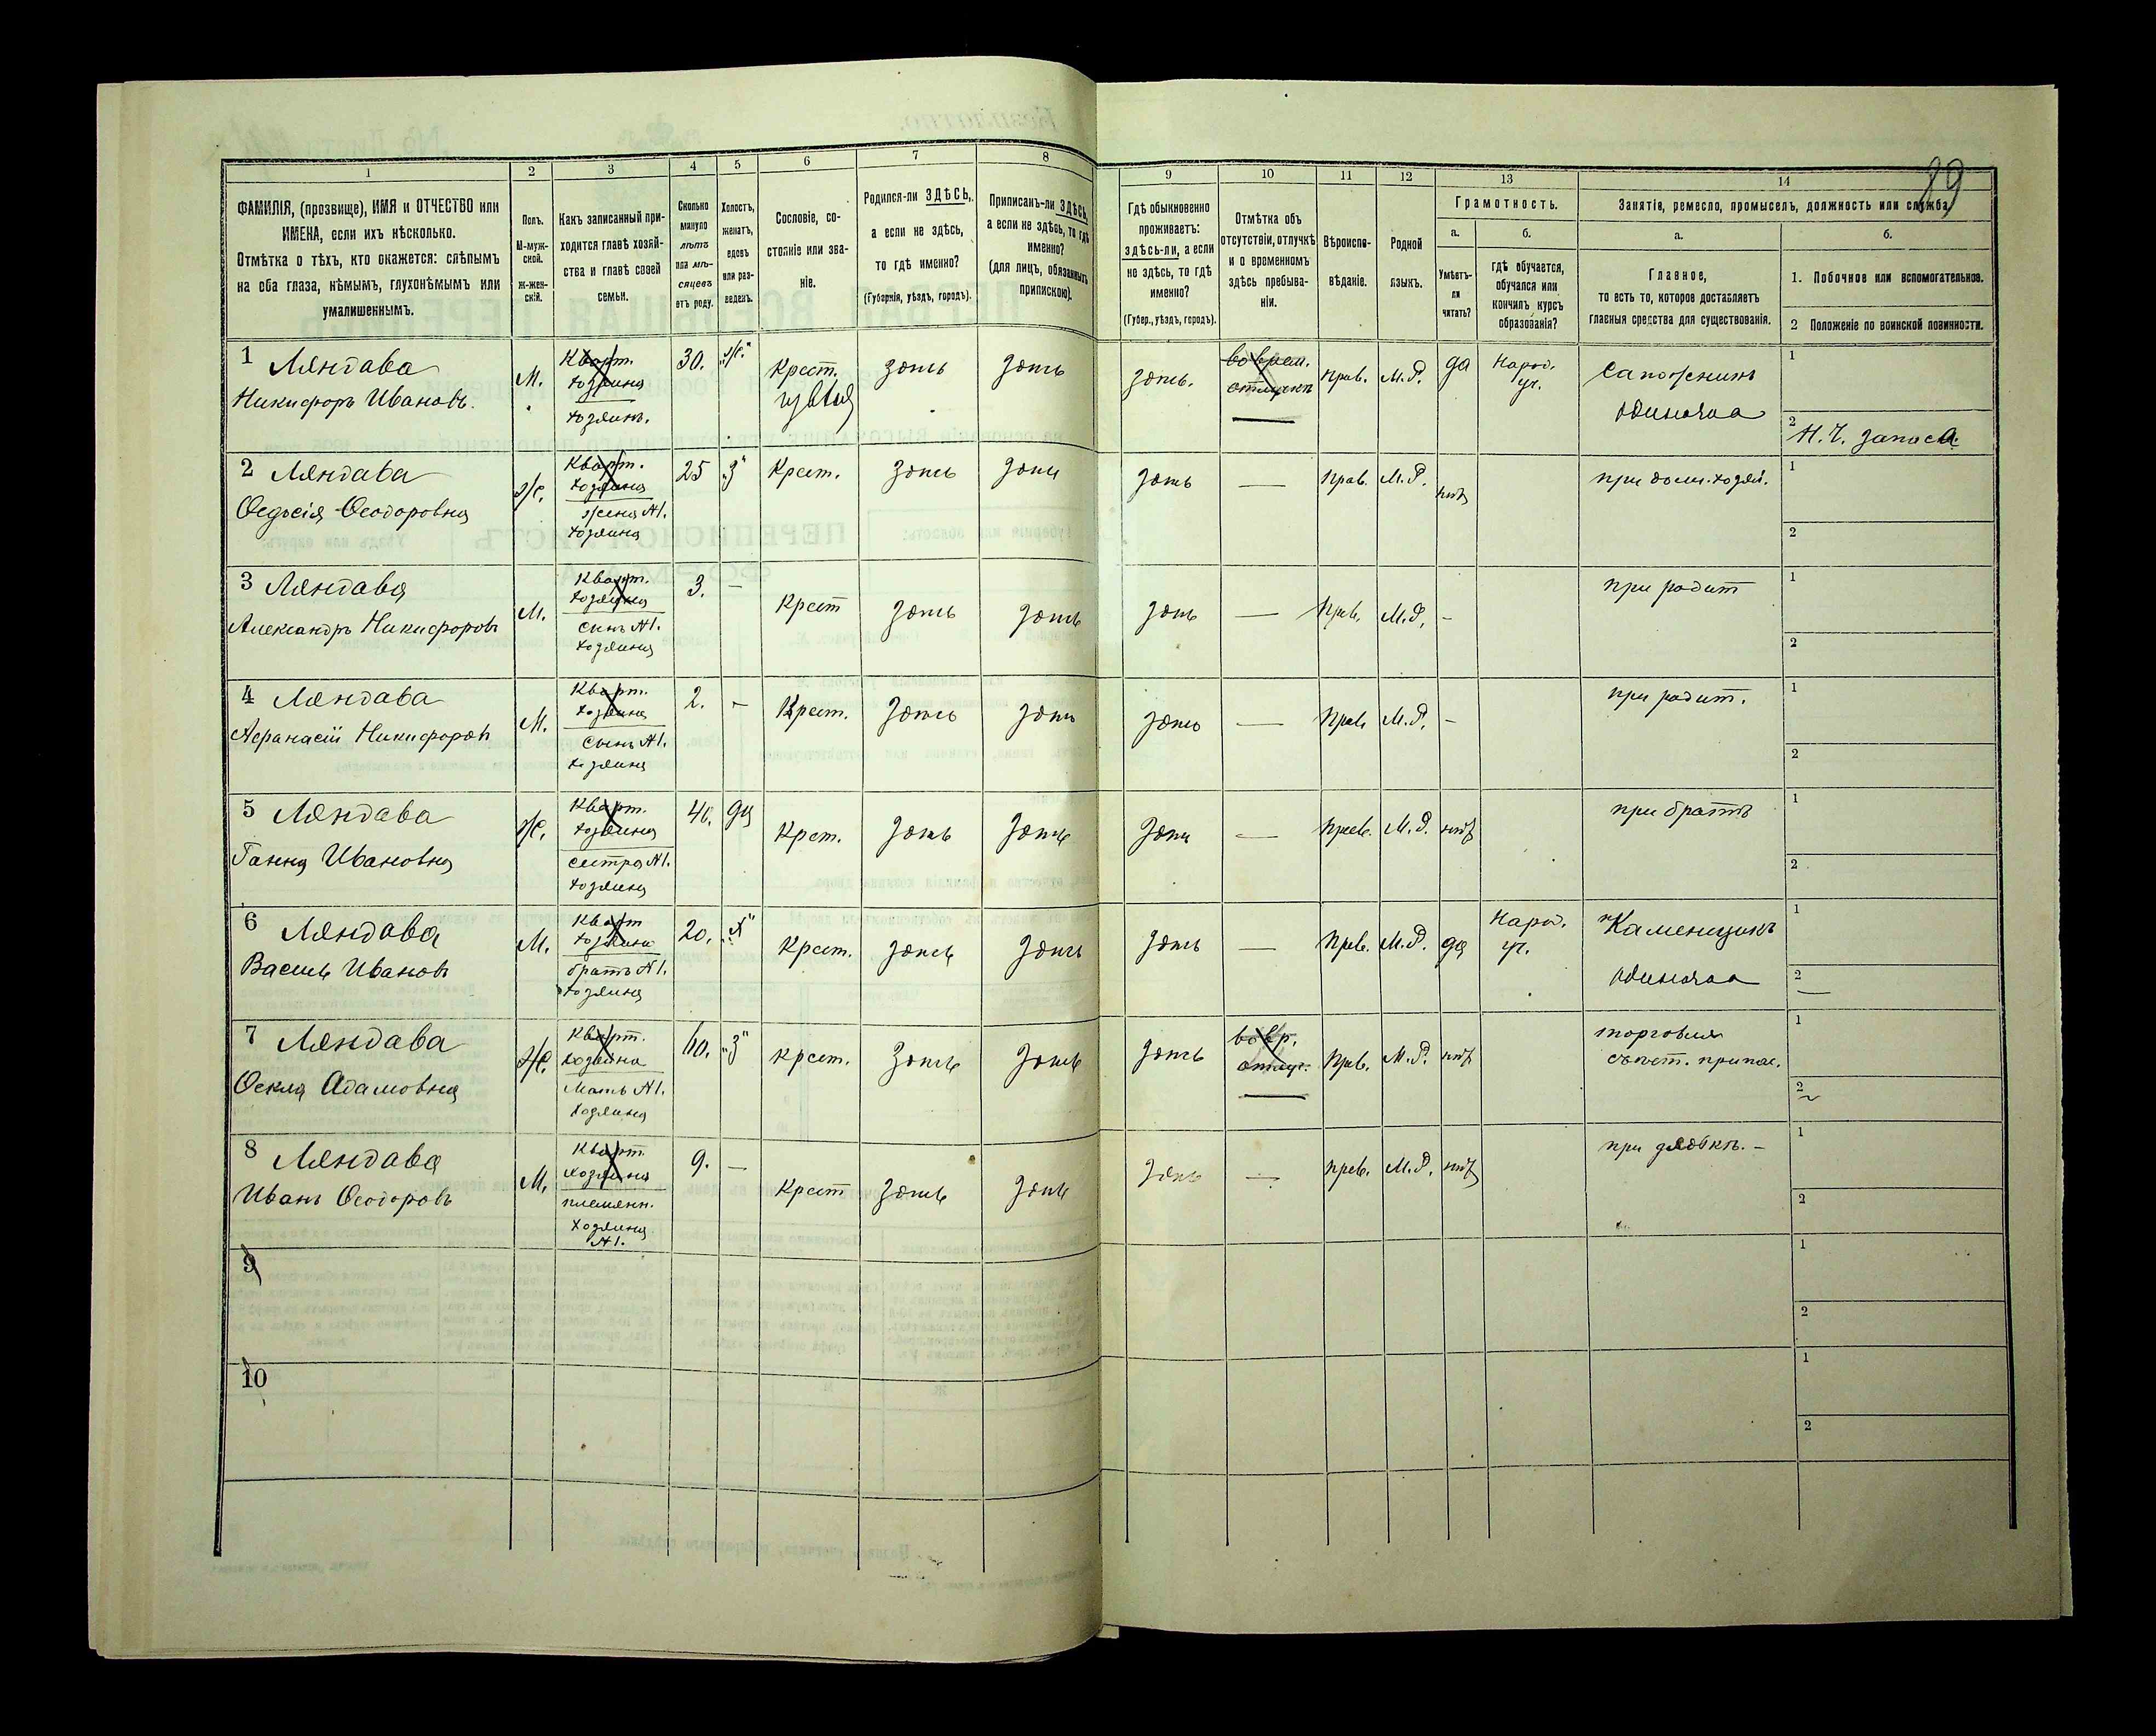 29
1 2 3 4 5 6 7 8 9 10 11 12 13 14
ФАМИЛІЯ, (прозвище), ИМЯ и ОТЧЕСТВО или
ИМЕНА, если ихъ нѣсколько.
Отмѣтка о тѣхъ, кто окажется: слѣпымъ
на оба глаза, нѣмымъ, глухонѣмымъ или
умалишеннымъ.
Полъ.
М-муж-
ской.
Ж-жен-
скій.
Какъ записанный при-
ходится главѣ хозяй-
ства и главѣ своей
семьи.
Сколько
минуло
лѣтъ
или мѣ-
сяцевъ
отъ роду.
Холостъ,
женатъ,
вдовъ
или раз-
веденъ.
Сословіе, со-
стояніе или зва-
ніе.
Родился-ли ЗДѢСЬ,
а если не здѣсь,
то гдѣ именно?
(Губернія, уѣздъ, городъ).
Приписанъ-ли ЗДѢСЬ,
а если не здѣсь, то гдѣ
именно?
(для лицъ, обязанныхъ
припискою).
Гдѣ обыкновенно
проживаетъ:
здѣсь-ли, а если
не здѣсь, то гдѣ
именно?
(Губер., уѣздъ, городъ).
Отмѣтка объ
отсутствіи, отлучкѣ
и о временномъ
здѣсь пребыва-
ніи.
Вѣроиспо-
вѣданіе.
Родной
языкъ.
Грамотность.
а.
Умѣетъ-
ли
читать?
б.
гдѣ обучается,
обучался или
кончилъ курсъ
образованія?
Занятія, ремесло, промыселъ, должность или служба.
а.
Главное,
то есть то, которое доставляетъ
главныя средства для существованія.
б.
1. Побочное или вспомогательное.
2 Положеніе по воинской повинности.
1 Ляндава
Никифоръ Ивановъ.
М.
Кварт.
хозяина
хозяинъ.
30.
"ж."
Крест.
здѣсь
здѣсь
здѣсь.
во врем.
отлучкѣ
Прав.
М.Р.
да
Народ.
уч.
Сапожникъ
одиночка
1
2 Н.Ч. запаса.
2 Ляндава
Ѳедосія Ѳеодоровна
Ж.
Кварт.
хозяина
жена №1.
хозяина
25
"З"
Крест.
здѣсь
здѣсь
здѣсь
—
Прав.
М.Р.
нѣт
при дом. хозяй.
1
2
3 Ляндава
Александръ Никифоровъ
М.
Кварт.
хозяина
сынъ №1.
хозяина
3.
—
Крест
здѣсь
здѣсь
здѣсь
—
Прав.
М.Р.
–
при родит
1
2
4 Ляндава
Афанасій Никифоровъ
М.
Кварт.
хозяина
сынъ №1.
хозяина
2.
–
Крест.
здѣсь
здѣсь
здѣсь
—
Прав.
М.Р.
–
при родит.
1
2
5 Ляндава
Ганна Ивановна
Ж.
Кварт.
хозяина
сестра №1.
хозяина
40.
Крст.
здѣсь
здѣсь
здѣсь
—
Прав.
М.Р.
нѣт
при братѣ
1
2
6 Ляндава
Василь Ивановъ
М.
Кварт
хозяина
братъ №1.
хозяина
20.
"Х"
Крест.
здѣсь
здѣсь
здѣсь
—
Прав.
М.Р.
да
Народ.
уч.
Каменщикъ
одиночка
1
2 —
7 Ляндава
Ѳекла Адамовна
Ж.
Кварт.
хозяина
Мать №1.
хозяина
60.
"З"
крест.
здѣсь
здѣсь
здѣсь
во вр.
отлуч.
Прав.
М.Р.
нѣт
торговля
съѣст. припас.
1
2
8 Ляндава
Иванъ Ѳеодоровъ
М.
Кварт
хозяина
племянн.
хозяина
№1.
9.
—
Крест
здѣсь
здѣсь
здѣсь
—
прав.
М.Р.
нѣт
при дядькѣ. –
1
2
9
1
2
10
1
2